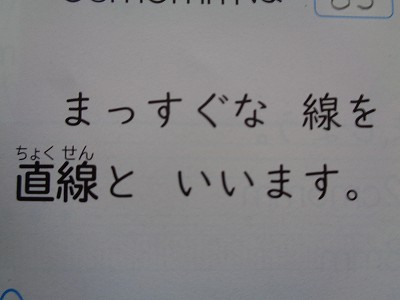 まっすぐな 線を
ちょく せん
直線と いいます。